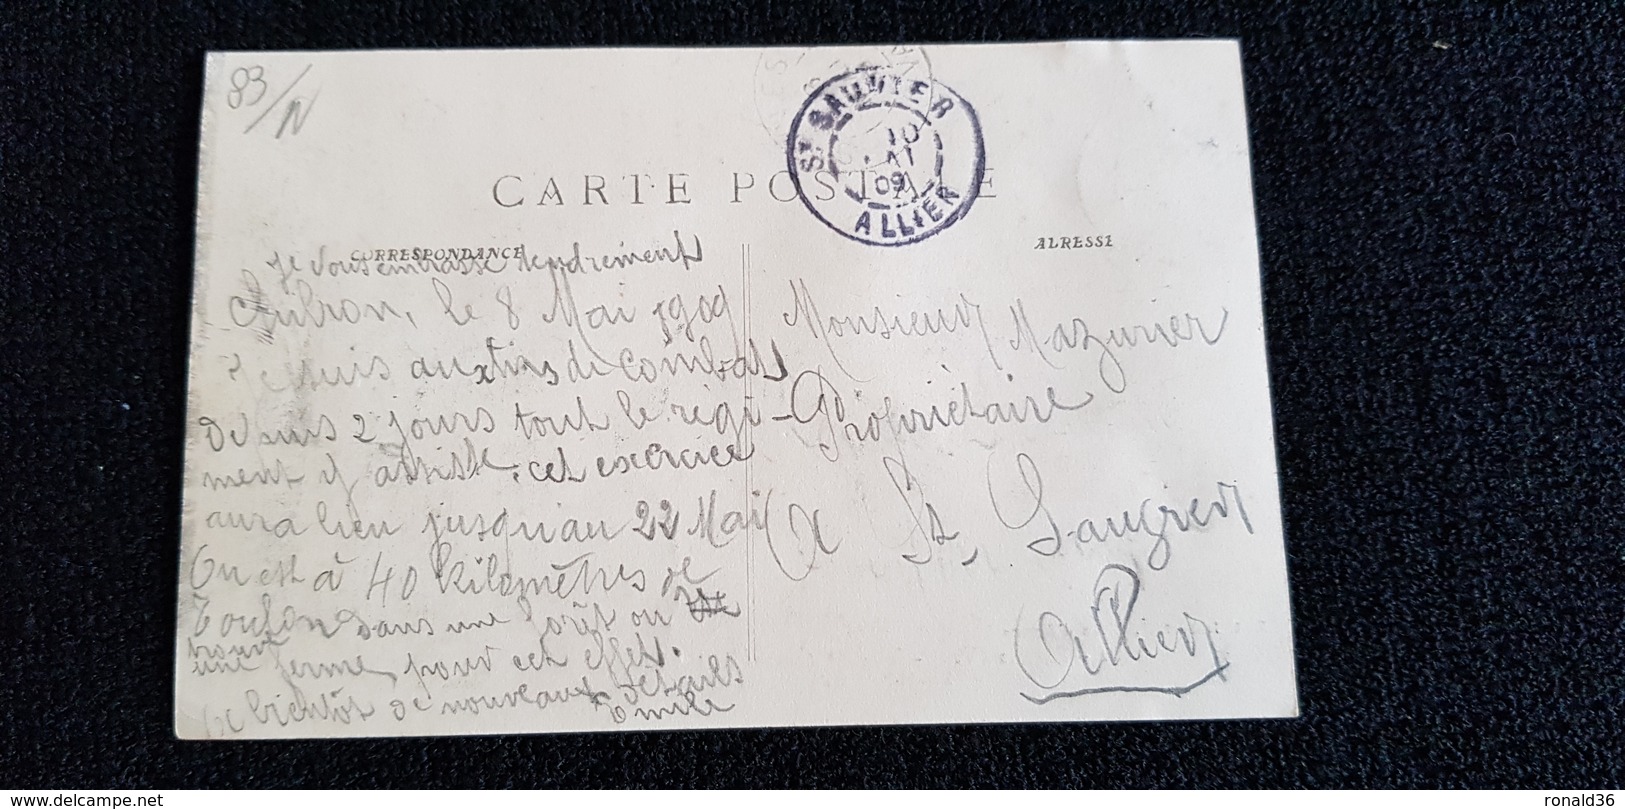 83/N
ST SAUVIER
10
AI
09
ALLIER
CARTE POSTALE
CORRESPONDANCE
ALRESSE
je vous embrasse tendrement
Chibron, le 8 Mai 1909
Je suis aux tirs de combats
depuis 2 jours tout le régi-
ment y assiste. cet exercice
aura lieu jusqu'au 22 Mai
On est à 40 kilomètres de
Toulon dans une forêt ou
trouve
une ferme pour cet effet.
bientôt de nouveaux détails
Emile
Monsieur Mazurier
Propriétaire
A St. Sauvier
Allier
ronald36